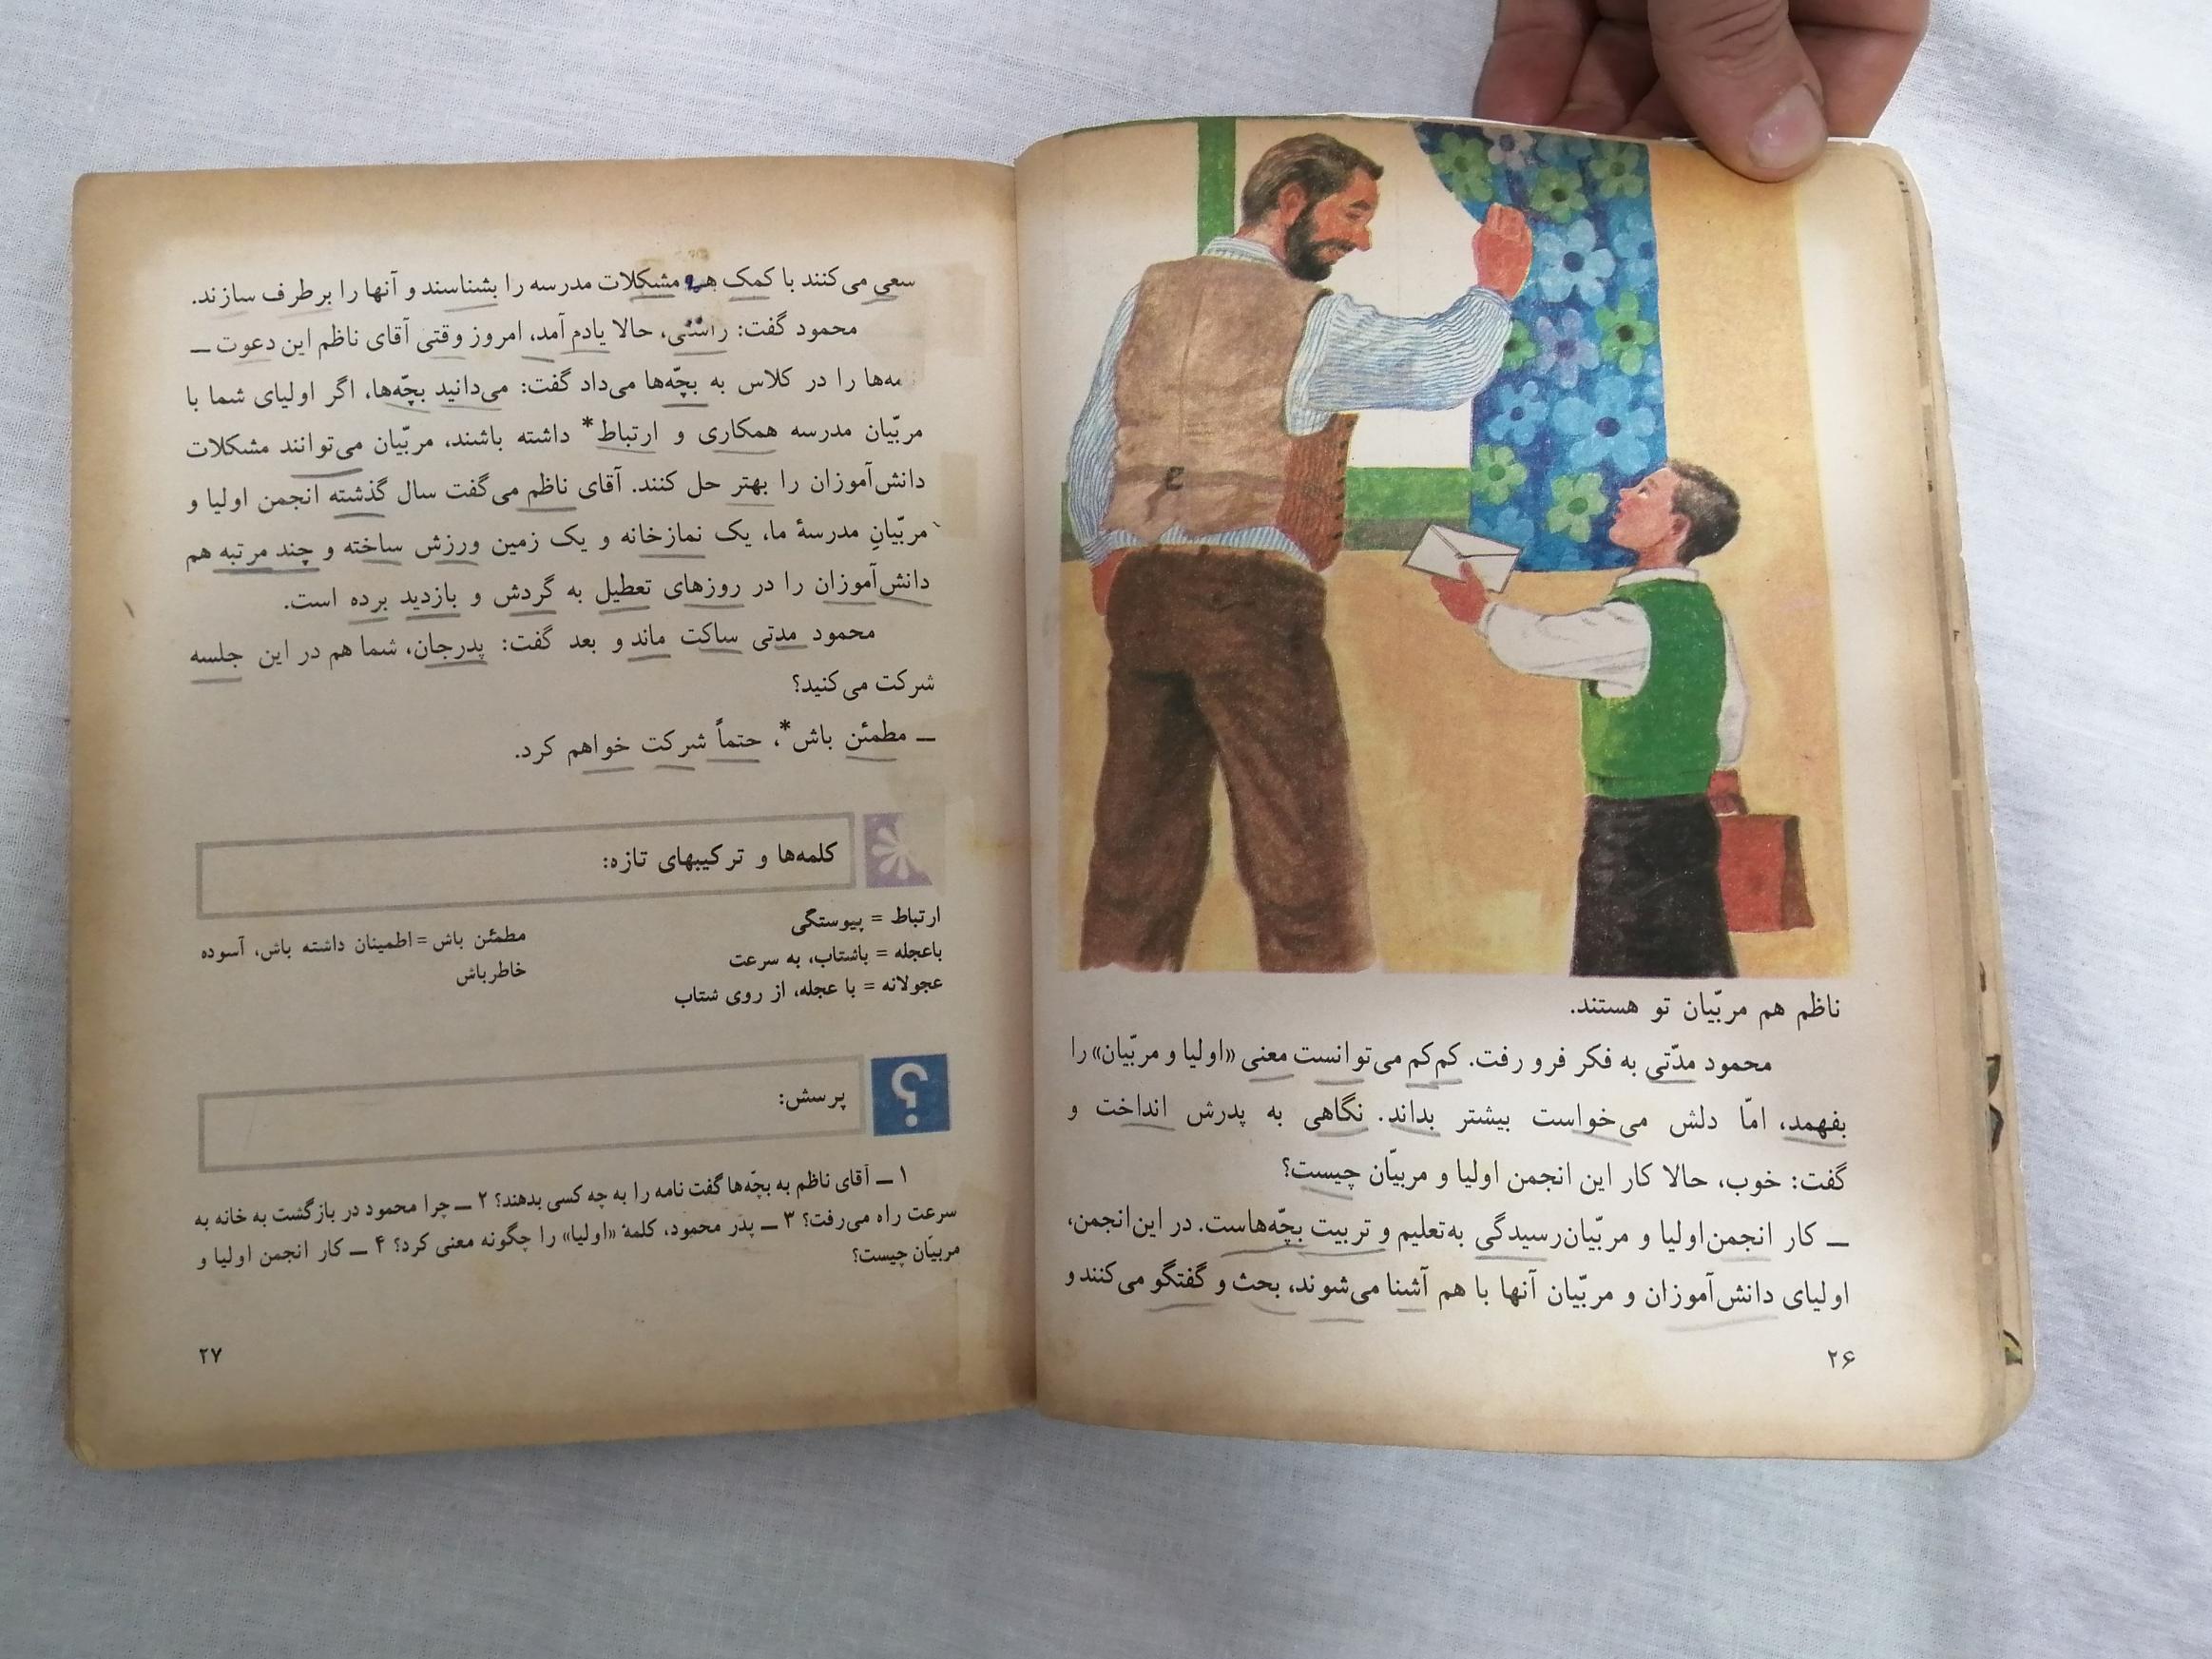 ناظم هم مربّیان تو هستند.
محمود مدّتی به فکر فرو رفت. کم‌کم می‌توانست معنی «اولیا و مربّیان» را
بفهمد، امّا دلش می‌خواست بیشتر بداند. نگاهی به پدرش انداخت و
گفت: خوب، حالا کار این انجمن اولیا و مربیّان چیست؟
ــ کار انجمن‌اولیا و مربّیان‌رسیدگی به‌تعلیم و تربیت بچّه‌هاست. در این‌انجمن،
اولیای دانش‌آموزان و مربّیان آنها با هم آشنا می‌شوند، بحث و گفتگو می‌کنند و
۲۶
سعی می‌کنند با کمک هم مشکلات مدرسه را بشناسند و آنها را برطرف سازند.
محمود گفت: راستی، حالا یادم آمد، امروز وقتی آقای ناظم این دعوت ــ
مه‌ها را در کلاس به بچّه‌ها می‌داد گفت: می‌دانید بچّه‌ها، اگر اولیای شما با
مربّیان مدرسه همکاری و ارتباط* داشته باشند، مربّیان می‌توانند مشکلات
دانش‌آموزان را بهتر حل کنند. آقای ناظم می‌گفت سال گذشته انجمن اولیا و
مربّیانِ مدرسهٔ ما، یک نمازخانه و یک زمین ورزش ساخته و چند مرتبه هم
دانش‌آموزان را در روزهای تعطیل به گردش و بازدید برده است.
محمود مدتی ساکت ماند و بعد گفت: پدرجان، شما هم در این جلسه
شرکت می‌کنید؟
ــ مطمئن باش*، حتماً شرکت خواهم کرد.
کلمه‌ها و ترکیبهای تازه:
ارتباط = پیوستگی
باعجله = باشتاب، به سرعت
عجولانه = با عجله، از روی شتاب
مطمئن باش = اطمینان داشته باش، آسوده
خاطرباش
؟
پرسش:
۱ ــ آقای ناظم به بچّه‌ها گفت نامه را به چه کسی بدهند؟ ۲ ــ چرا محمود در بازگشت به خانه به
سرعت راه می‌رفت؟ ۳ ــ پدر محمود، کلمهٔ «اولیا» را چگونه معنی کرد؟ ۴ ــ کار انجمن اولیا و
مربیّان چیست؟
۲۷